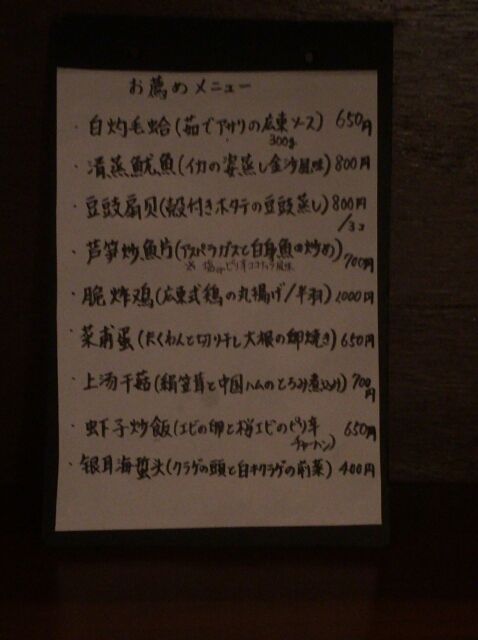 お薦めメニュー
・白灼毛蛤(茹でアサリの広東ソース) 650円
300g
・清蒸魷魚(イカの姿蒸し金沙風味) 800円
・豆豉扇贝(殻付きホタテの豆豉蒸し) 800円
/3コ
・芦笋炒魚片(アスパラガスと白身魚の炒め) 700円
塩orピリ辛ココナッツ風味
・脆炸鸡(広東式鶏の丸揚げ/半羽) 1000円
・菜甫蛋(たくわんと切り干し大根の卵焼き) 650円
・上汤干菇(絹笠茸と中国ハムのとろみ煮込み) 700円
・虾子炒飯(エビの卵と桜エビのピリ辛 650円
チャーハン)
・银耳海蜇头(クラゲの頭と白キクラゲの前菜) 400円